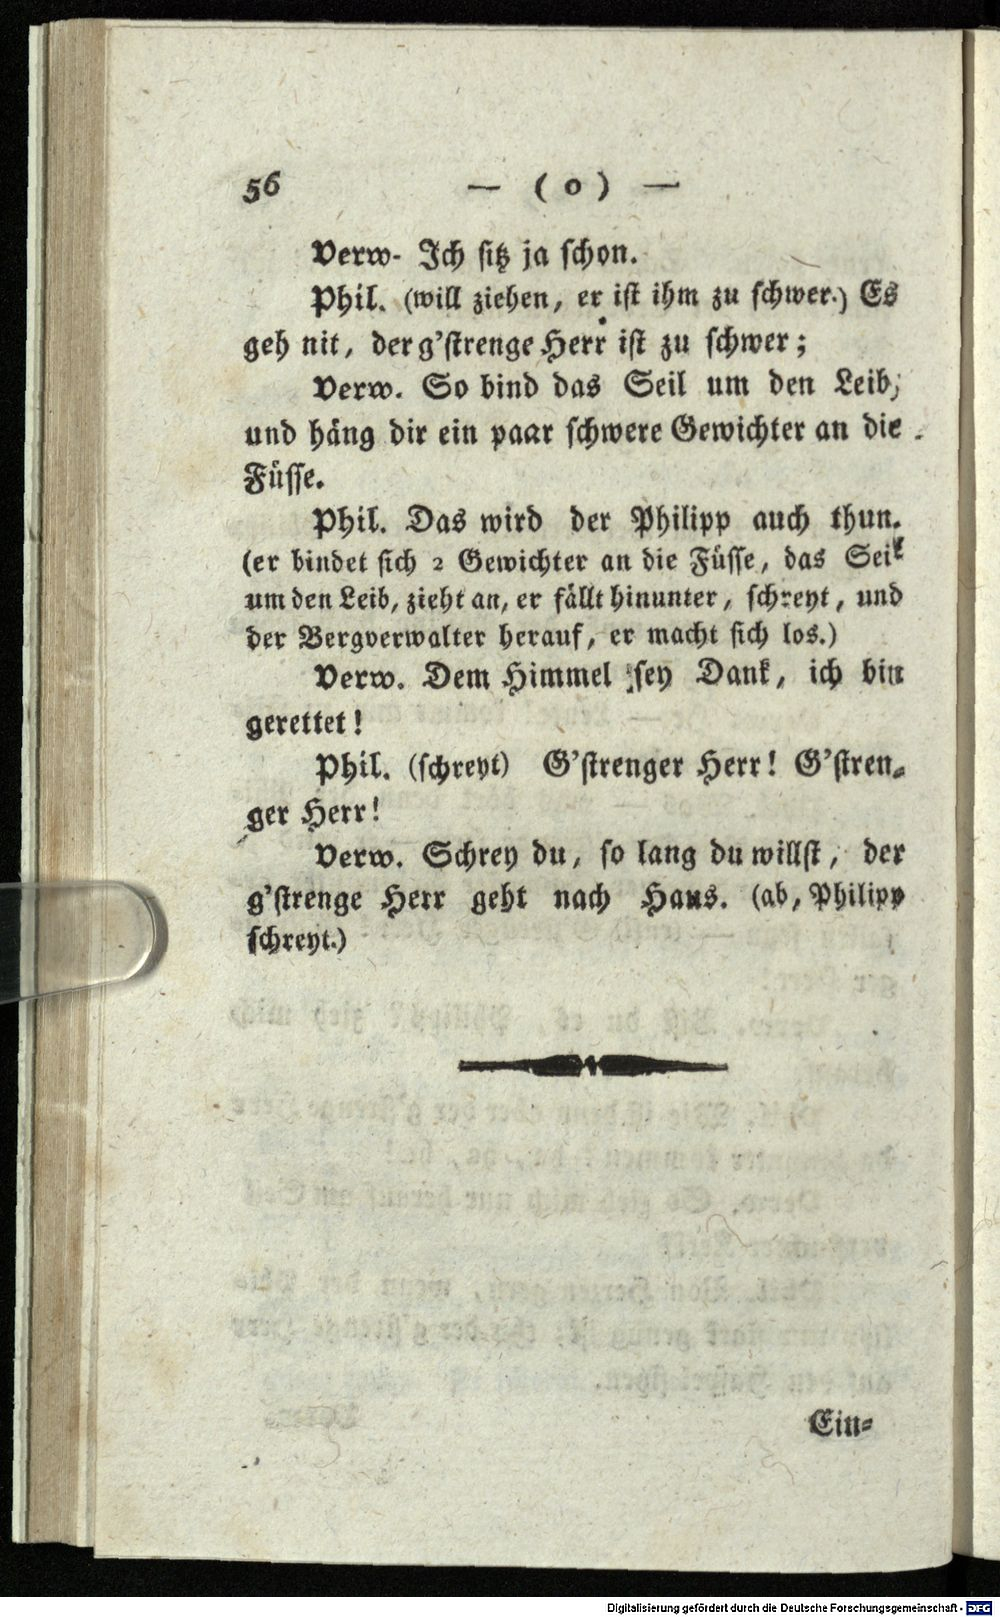 56 — (o) —
Verw- Ich sitz ja schon.
Phil. (will ziehen, er ist ihm zu schwer.) Es
geh nit, der g'strenge Herr ist zu schwer;
Verw. So bind das Seil um den Leib,
und häng dir ein paar schwere Gewichter an die
Füsse.
Phil. Das wird der Philipp auch thun.
(er bindet sich 2 Gewichter an die Füsse, das Seil
um den Leib, zieht an, er fällt hinunter, schreyt, und
der Bergverwalter herauf, er macht sich los.)
Verw. Dem Himmel sey Dank, ich bin
gerettet!
Phil. (schreyt) G'strenger Herr! G'stren-
ger Herr!
Verw. Schrey du, so lang du willst, der
g'strenge Herr geht nach Haus. (ab, Philipp
schreyt.)
Ein-
Digitalisierung gefördert durch die Deutsche Forschungsgemeinschaft - DFG